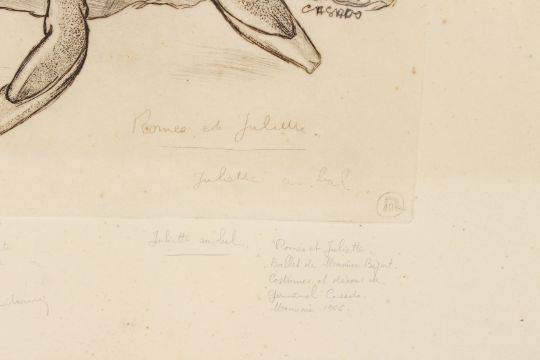 CASADO
Romeo et Juliette.
Juliette au bal.
Juliette au bal.
Romeo et Juliette.
Ballet de Maurice Béjart.
Costumes et décors de
Germinal Casado.
1966.